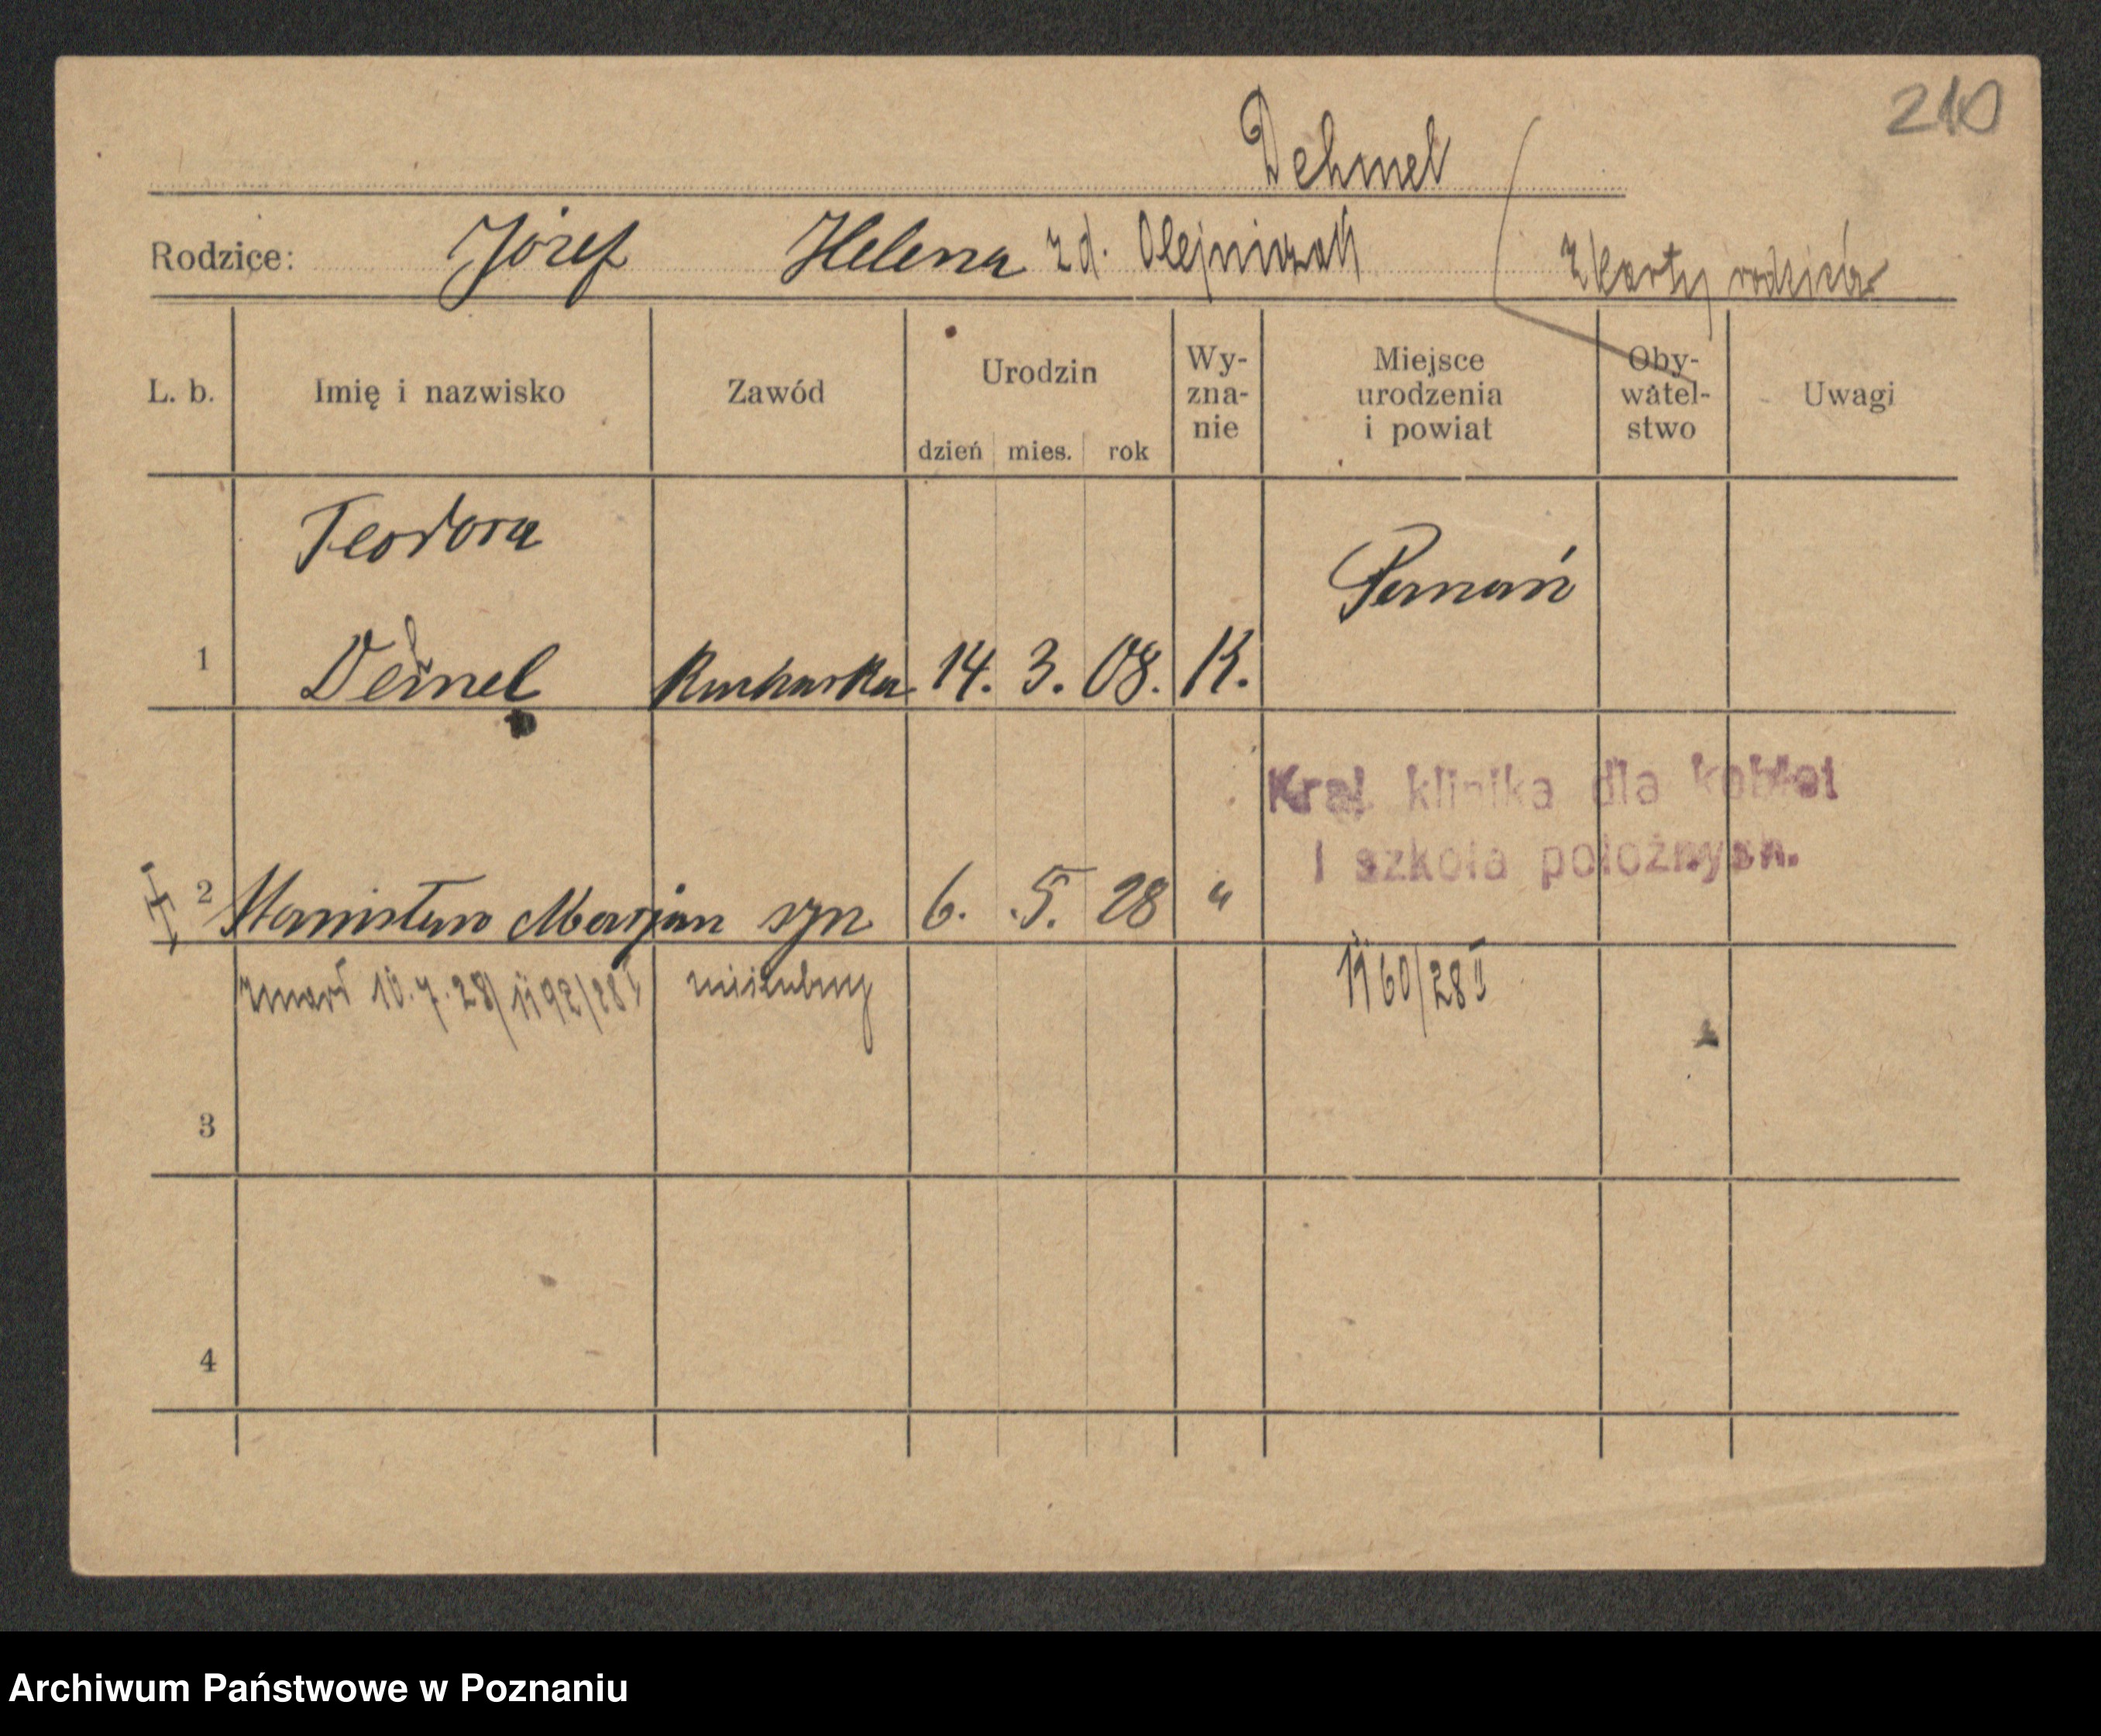 210
Dehmel
Rodzice: Józef Helena z d. Olejniczak z karty rodziców
L. b. Imię i nazwisko Zawód Urodzin dzień mies. rok Wy-zna-nie Miejsce urodzenia i powiat Oby-watel-stwo Uwagi
Teodora
Poznań
1 Dehmel Kucharka 14. 3. 08. K.
Król klinika dla kobiet
i szkoła położnych.
2 Stanisław Marjan syn 6. 5. 28 "
zmarł 10.7.28/1192/28 I nieślubny 1160/28 II
3
4
Archiwum Państwowe w Poznaniu